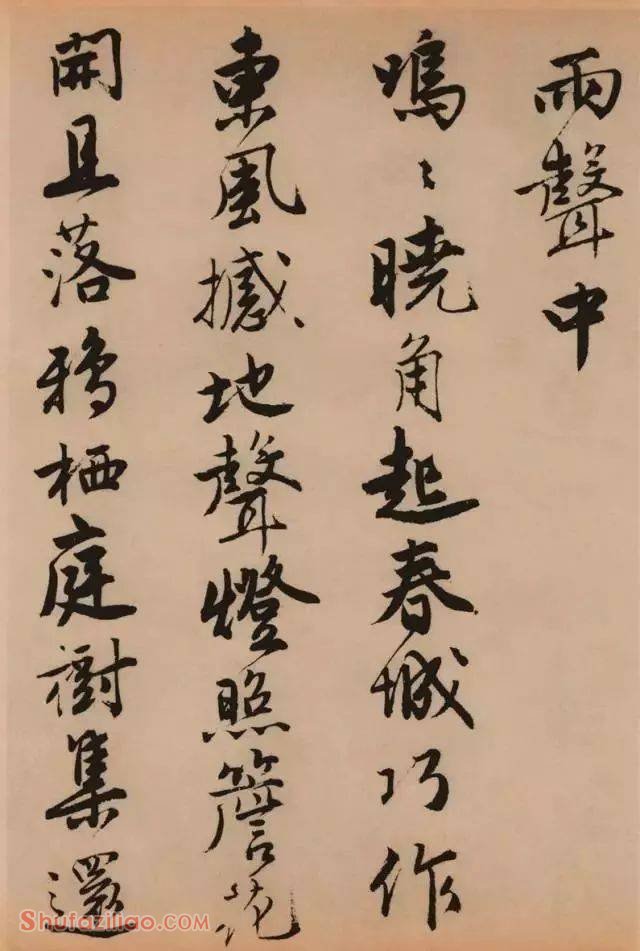 雨聲中
嗚〻曉角起春城巧作
東風撼地聲燈照簷花
開且落鴉栖庭樹集還
Shufaziliao.com